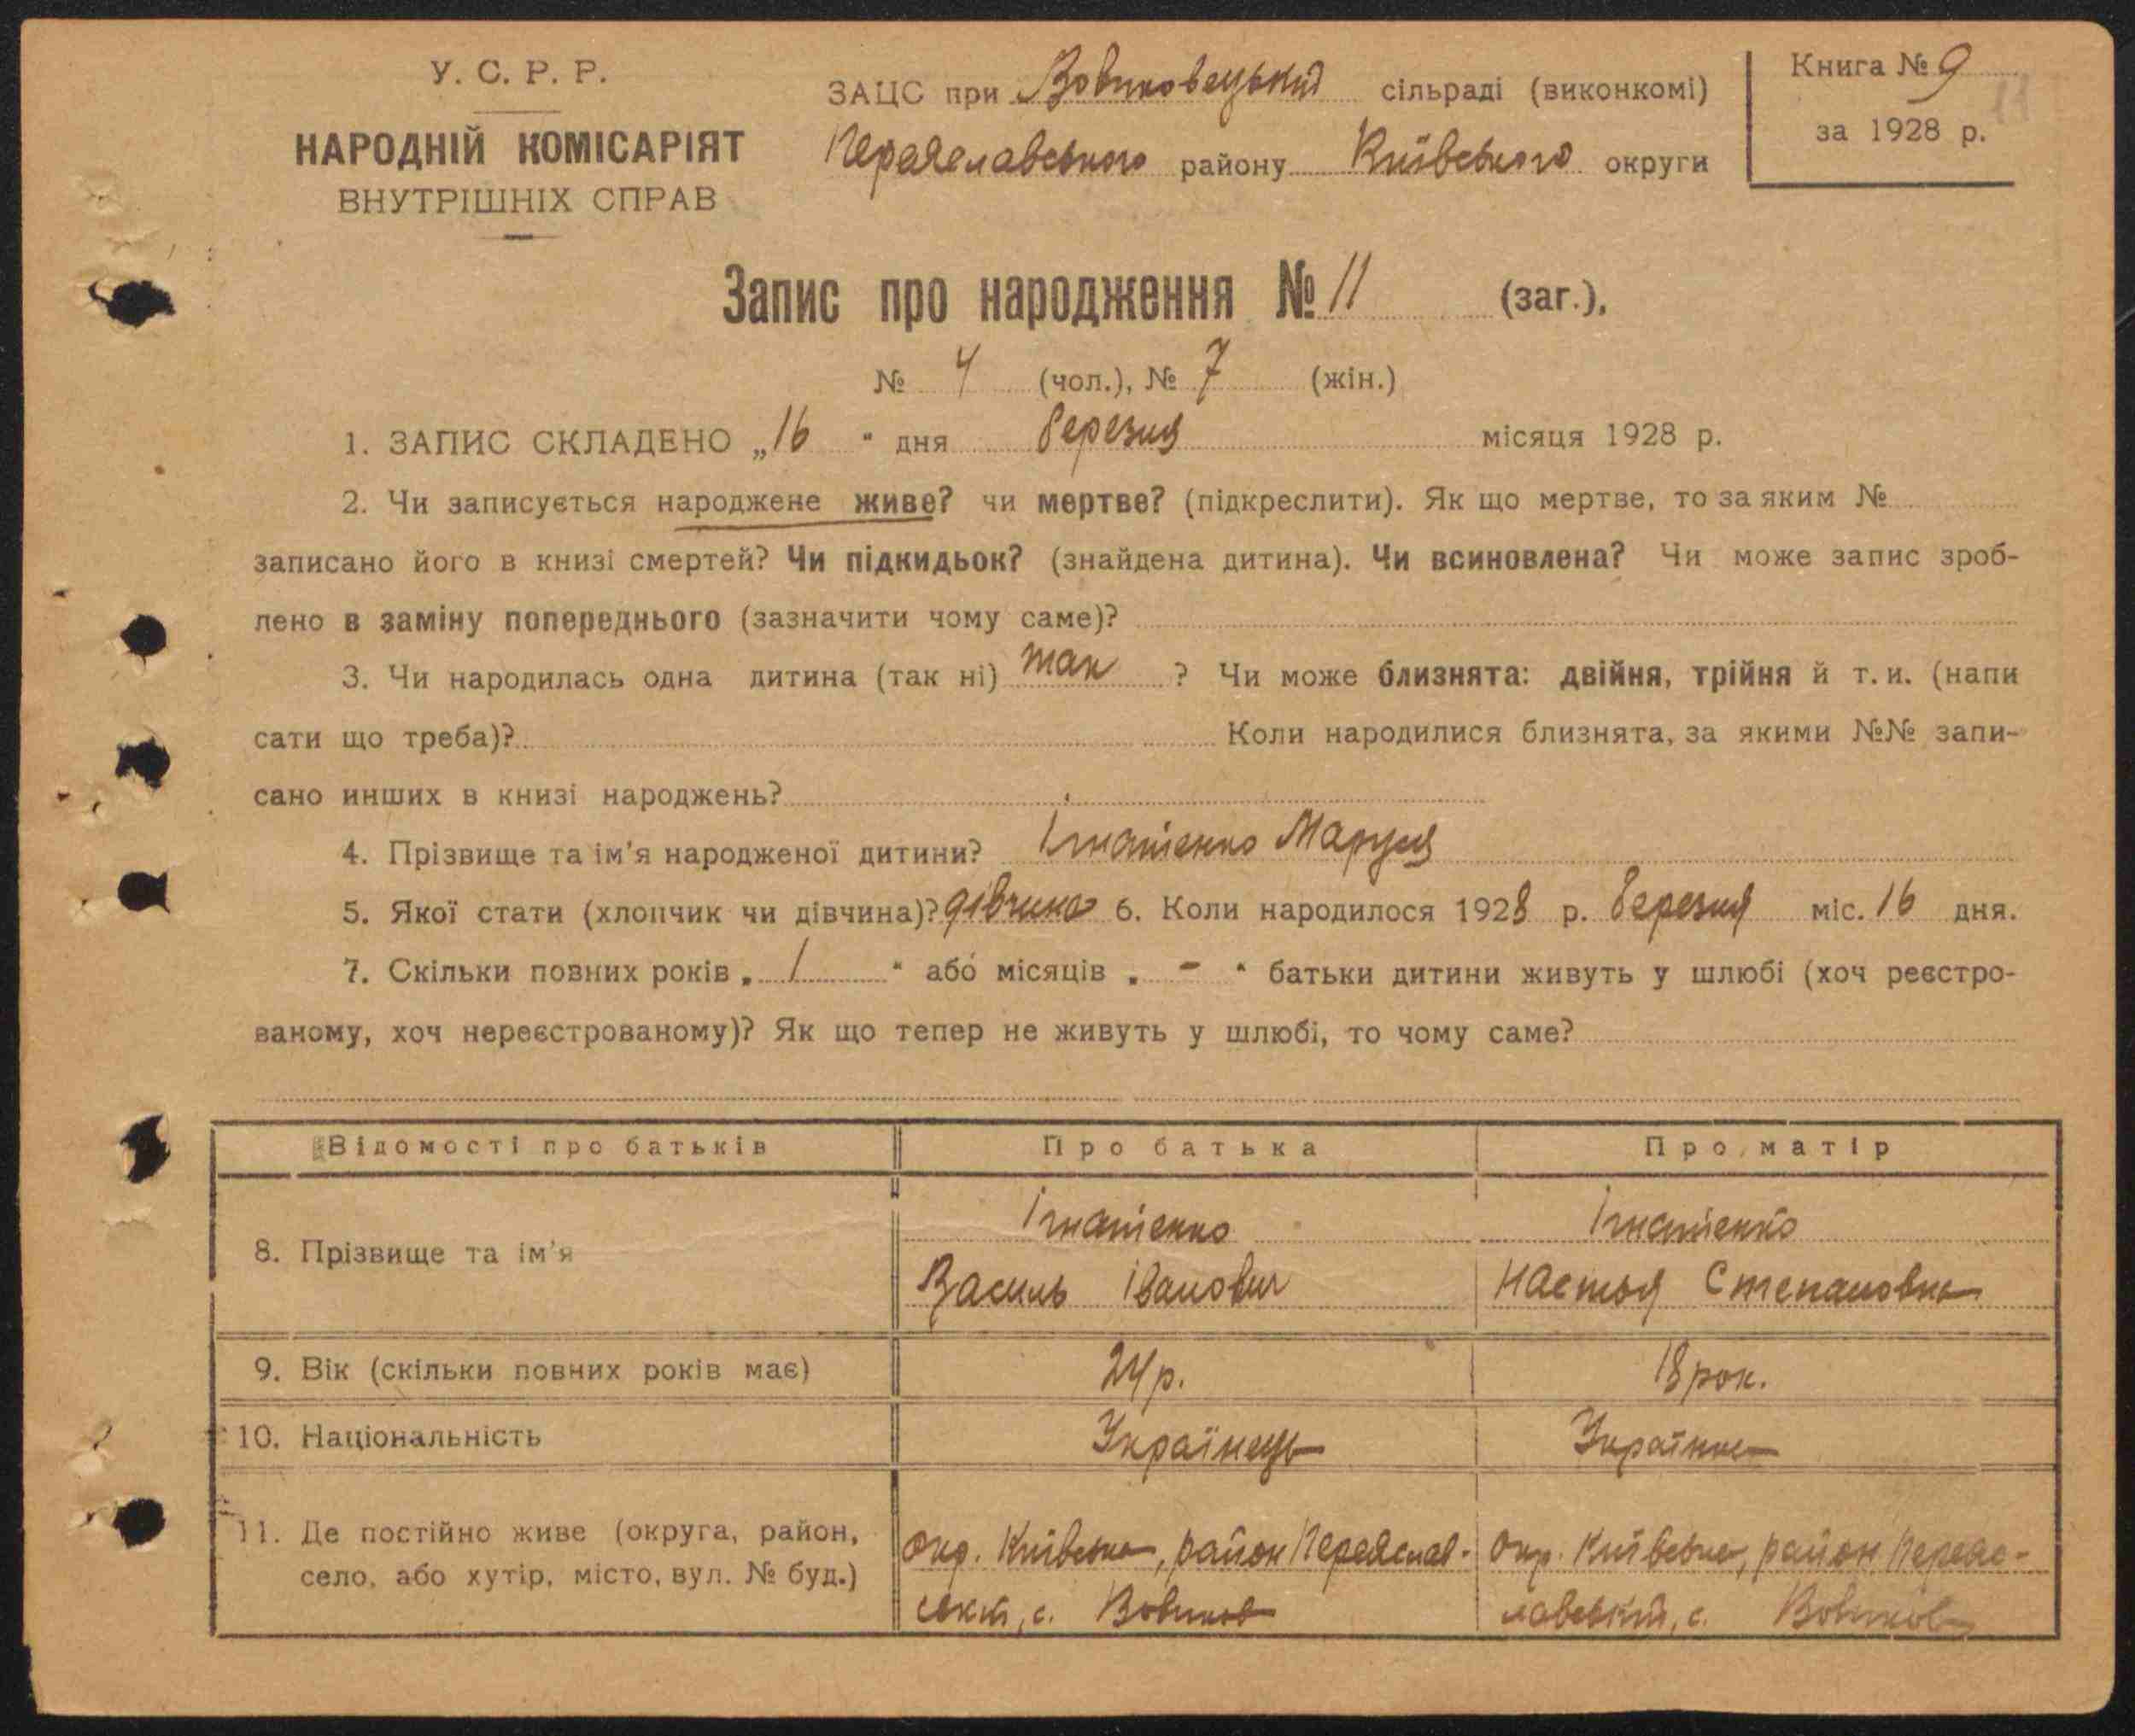 У. С. Р. Р.
НАРОДНІЙ КОМІСАРІЯТ
ВНУТРІШНІХ СПРАВ
ЗАЦС при сільраді (виконкомі)
Переяславського району Київського округи
Книга № 9
за 1928 р.
Запис про народження № 11 (заг.),
№ 4 (чол.), № 7 (жін.)
1. ЗАПИС СКЛАДЕНО „16 " дня березня місяця 1928 р.
2. Чи записується народжене живе? чи мертве? (підкреслити). Як що мертве, то за яким №
записано його в книзі смертей? Чи підкидьок? (знайдена дитина). Чи всиновлена? Чи може запис зроб-
лено в заміну попереднього (зазначити чому саме)?
3. Чи народилась одна дитина (так ні) так ? Чи може близнята: двійня, трійня й т. и. (напи
сати що треба)? Коли народилися близнята, за якими №№ запи-
сано инших в книзі народжень?
4. Прізвище та ім'я народженої дитини? Ігнатієнко Маруся
5. Якої стати (хлопчик чи дівчина)? дівчина 6. Коли народилося 1928 р. березня міс. 16 дня.
7. Скільки повних років „ 1 " або місяців „ - " батьки дитини живуть у шлюбі (хоч реєстро-
ваному, хоч нереєстрованому)? Як що тепер не живуть у шлюбі, то чому саме?
Відомості про батьків Про батька Про матір
8. Прізвище та ім'я
Ігнатієнко
Василь Іванович
Ігнатієнко
Настья Степановна
9. Вік (скільки повних років має) 24 р. 18 рок.
10. Національність Українець Українка
11. Де постійно живе (округа, район,
село, або хутір, місто, вул. № буд.)
окр. Київська, район Переяслав-
ськ, с.
окр. Київська, район Переяс-
лавський, с.